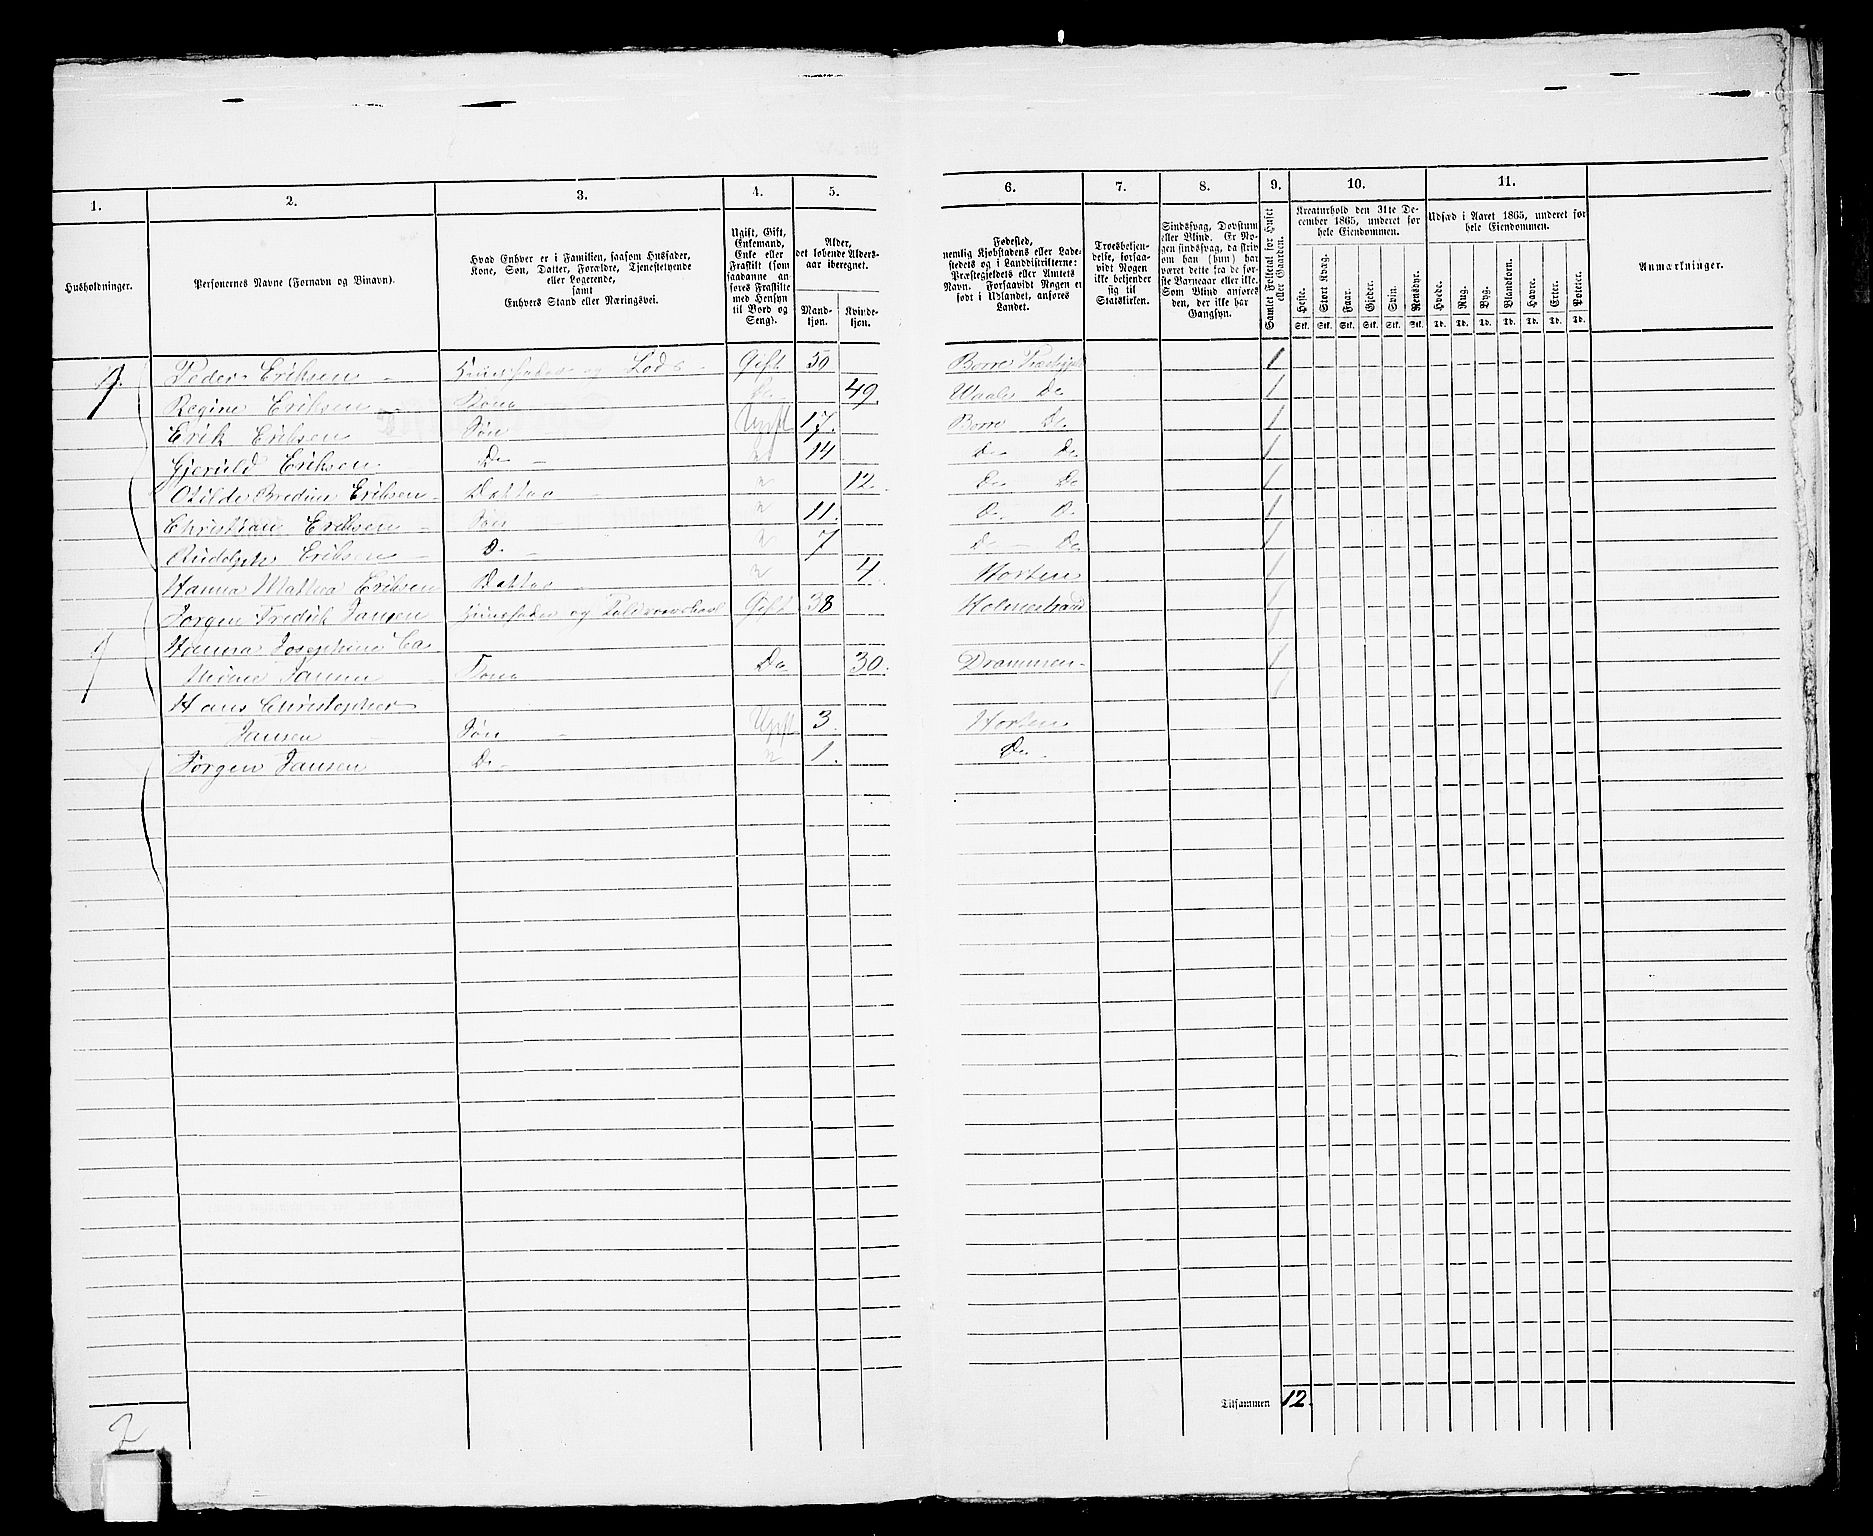 1. 2. 3. 4. 5. 6. 7. 8. 9. 10. 11.
Husholdninger.
Personernes Navne (Fornavn og Binavn).
Hvad Enhver er i Familien, saasom Husfader,
Kone, Søn, Datter, Forældre, Tjenestetyende
eller Logerende,
samt
Enhvers Stand eller Næringsvei.
Ugift, Gift,
Enkemand,
Enke eller
Fraskilt (som
saadanne an-
føres Fraskilte
med Hensyn
til Bord og
Seng).
Alder,
det løbende Alders-
aar iberegnet.
Mand-
kjøn.
Kvinde-
kjøn.
Fødested,
nemlig Kjøbstadens eller Lade-
stedets og i Landdistrikterne:
Præstegjeldets eller Amtets
Navn. Forsaavidt Nogen er
født i Udlandet, anføres
Landet.
Troesbekjen-
delse, forsaa-
vidt Nogen
ikke bekjender
sig til
Statskirken.
Sindssvag, Døvstum
eller Blind. Er No-
gen sindssvag, da skriv
om han (hun) har
været dette fra de før-
ste Barneaar eller ikke.
Som Blind anføres
den, der ikke har
Gangsyn.
Samlet Folketal for Huset
eller Gaarden.
Kreaturhold den 31te De-
cember 1865, underet for
hele Eiendommen.
Heste. Stort Kvæg. Faar. Gjeder. Svin. Rensdyr.
Stk. Stk. Stk. Stk. Stk. Stk.
Udsæd i Aaret 1865, underet for
hele Eiendommen.
Hvede. Rug. Byg. Blandkorn. Havre. Erter. Poteter.
Td. Td. Td. Td. Td. Td. Td.
Anmærkninger.
1. Peder Eriksen Huusfader og Lods Gift 50 Borre Præstegj. 1
Regine Eriksen Kona Do 49. Waale Do 1
Erik Eriksen Søn Ugift 17. Borre Do 1
Gjeruld Eriksen Do 14 Do Do 1
Otilde Bredine Eriksen Datter 12. Do Do 1
Christian Eriksen Søn 11. Do Do 1
Rudolph Eriksen Do 7 Do Do 1
Hanna Mathea Eriksen Datter 4. Horten 1
1 Jørgen Fredrik Jansen Huusfader og Gift 38 Holmestrand 1
Hanna Josephine Ca-
thrine Jansen Kona Do 30. Drammen 1
Hans Christopher 1
Jansen Søn Ugift 3. Horten
Jørgen Jansen Do 1. Do
Tilsammen 12.
2